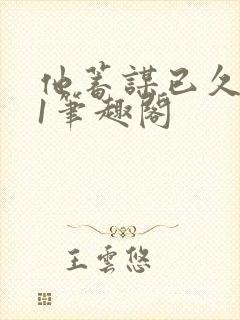 他蓄謀已久
1筆趣閣
王雲悠